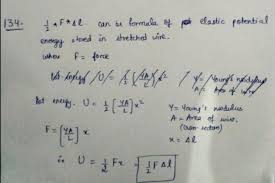 134. 1/2 * F * Δl. can be formula of elastic potential
energy stored in stretched wire.
where F = force
Pot energy. U = 1/2 [YA/L] x²
Y = Young's modulus
A = Area of wire.
(cross-section)
F = [YA/L] x
x = Δl
∴ U = 1/2 Fx = 1/2 F Δl